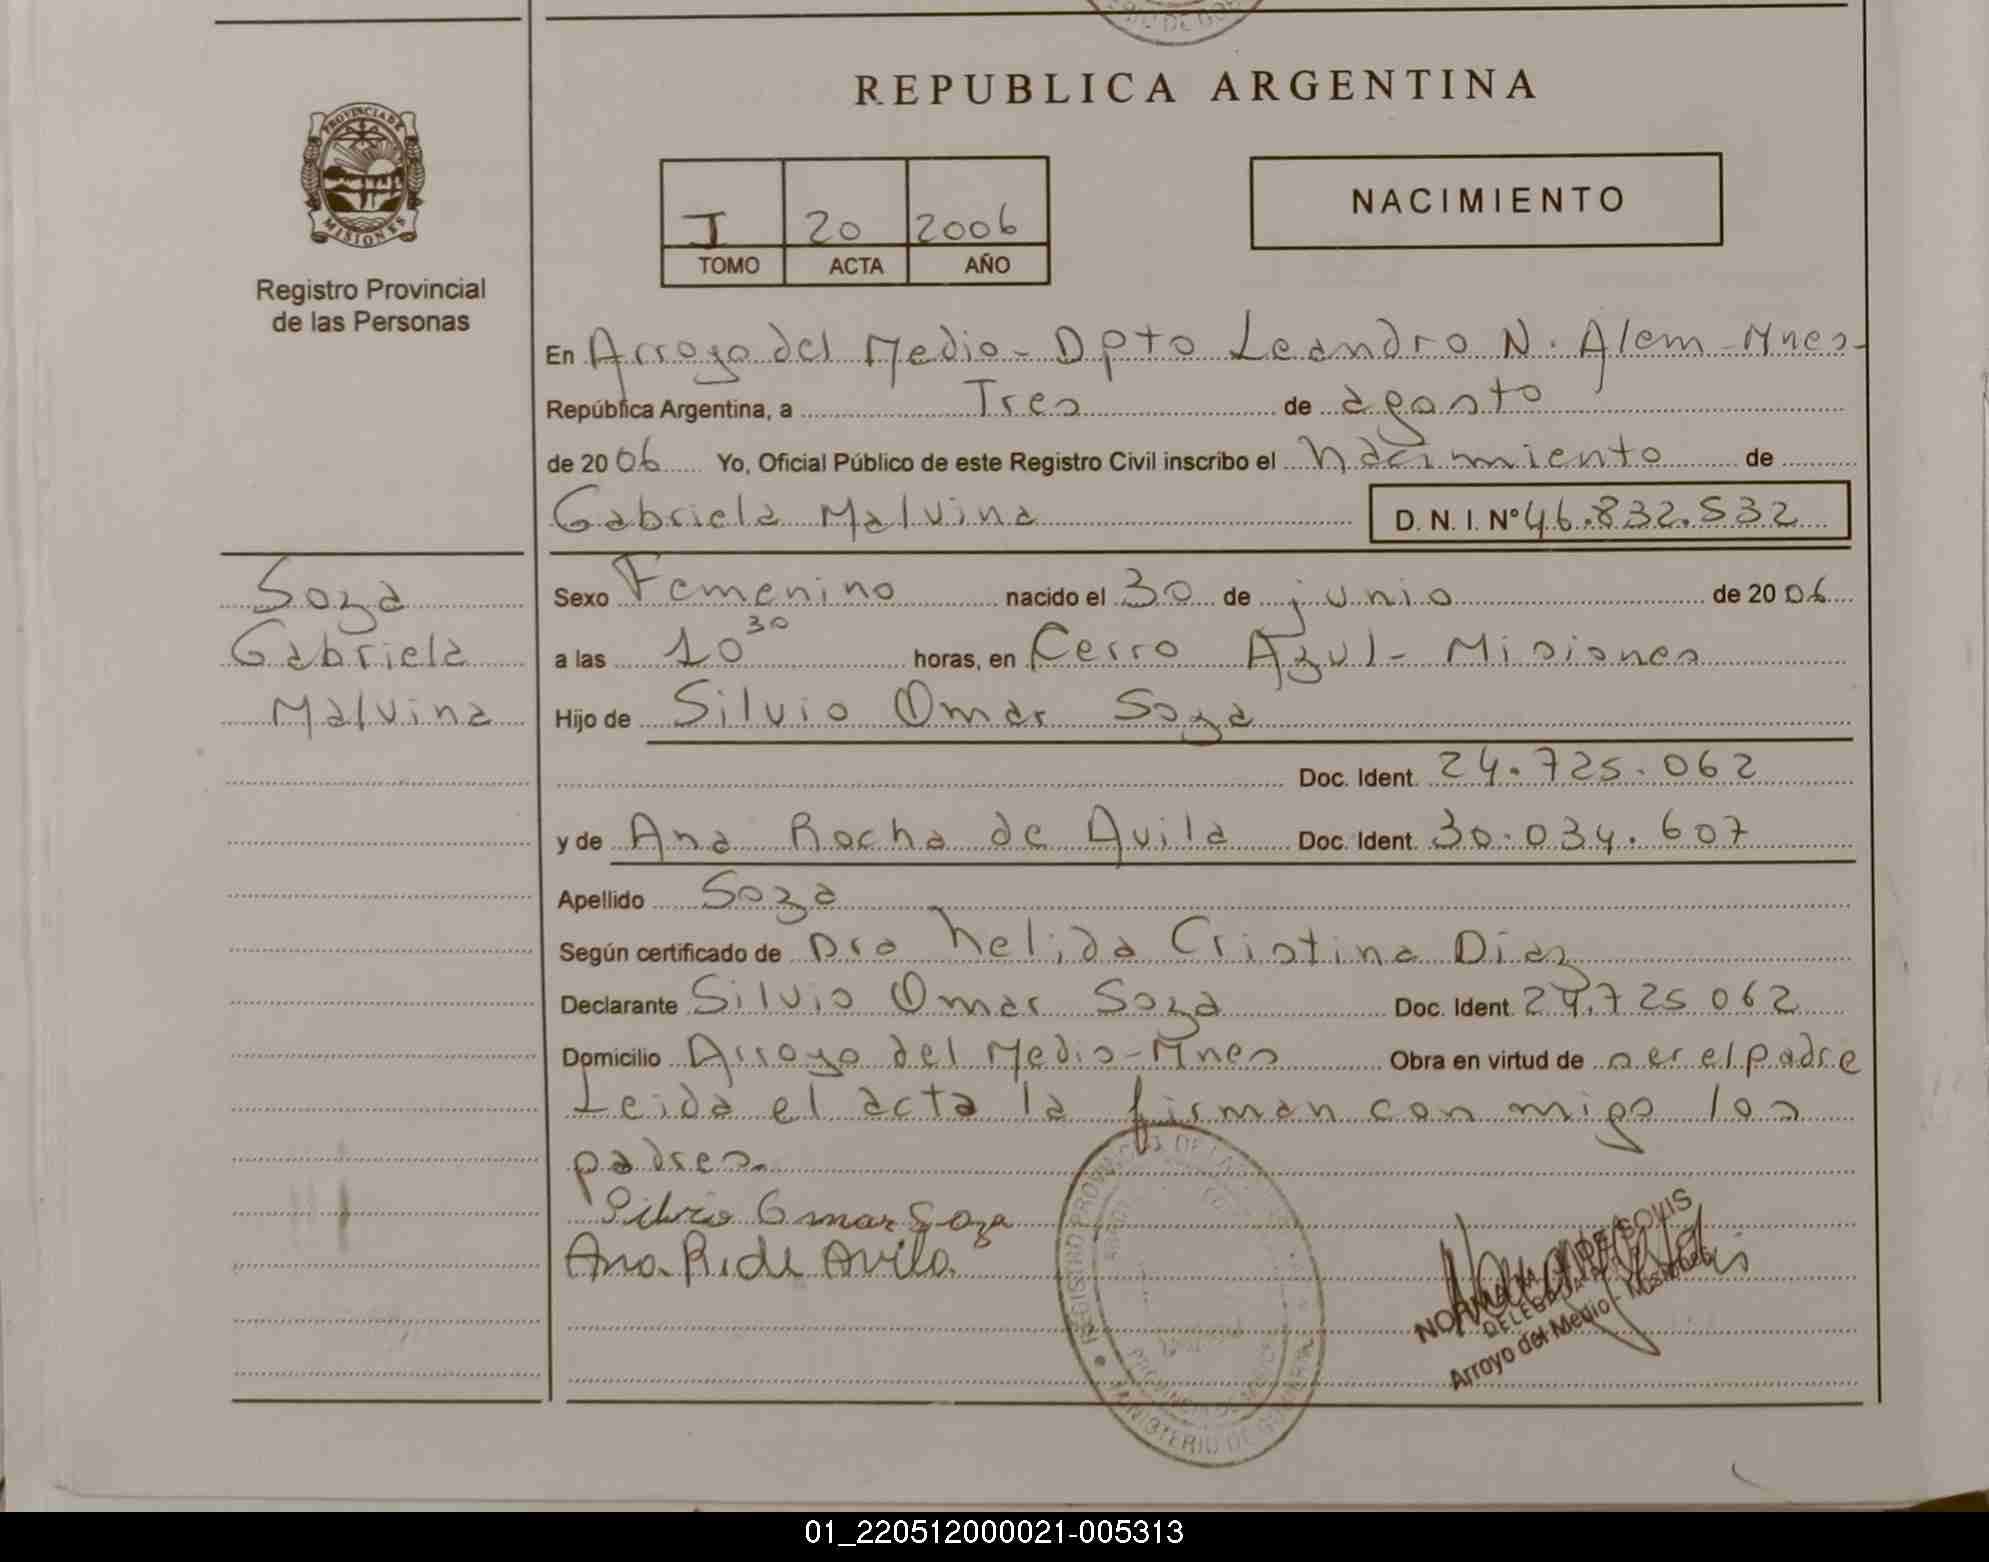 REPUBLICA ARGENTINA
PROVINCIA DE
MISIONES
Registro Provincial
de las Personas
I 20 2006
TOMO ACTA AÑO
NACIMIENTO
En Arroyo del Medio - Dpto Leandro N. Alem - Mnes -
República Argentina, a Tres de agosto
de 2006 Yo, Oficial Público de este Registro Civil inscribo el nacimiento de
Gabriela Malvina D. N. I. N° 46.832.532
Soza
Gabriela
Malvina
Sexo Femenino nacido el 30 de junio de 2006
a las 10 30 horas, en Cerro Azul - Misiones
Hijo de Silvio Omar Soza
Doc. Ident. 24.725.062
y de Ana Rocha de Avila Doc. Ident. 30.034.607
Apellido Soza
Según certificado de Dra Nelida Cristina Diaz
Declarante Silvio Omar Soza Doc. Ident. 24.725 062
Domicilio Arroyo del Medio - Mnes Obra en virtud de ser el padre
Leida el acta la firman con migo los
padres.
Silvio Omar Soza
Ana R. de Avila
REGISTRO PROVINCIAL DE LAS
MINISTERIO DE GOBIERNO
NORMA DE SOLIS
DELEGADA
Arroyo del Medio - Misiones
01_220512000021-005313